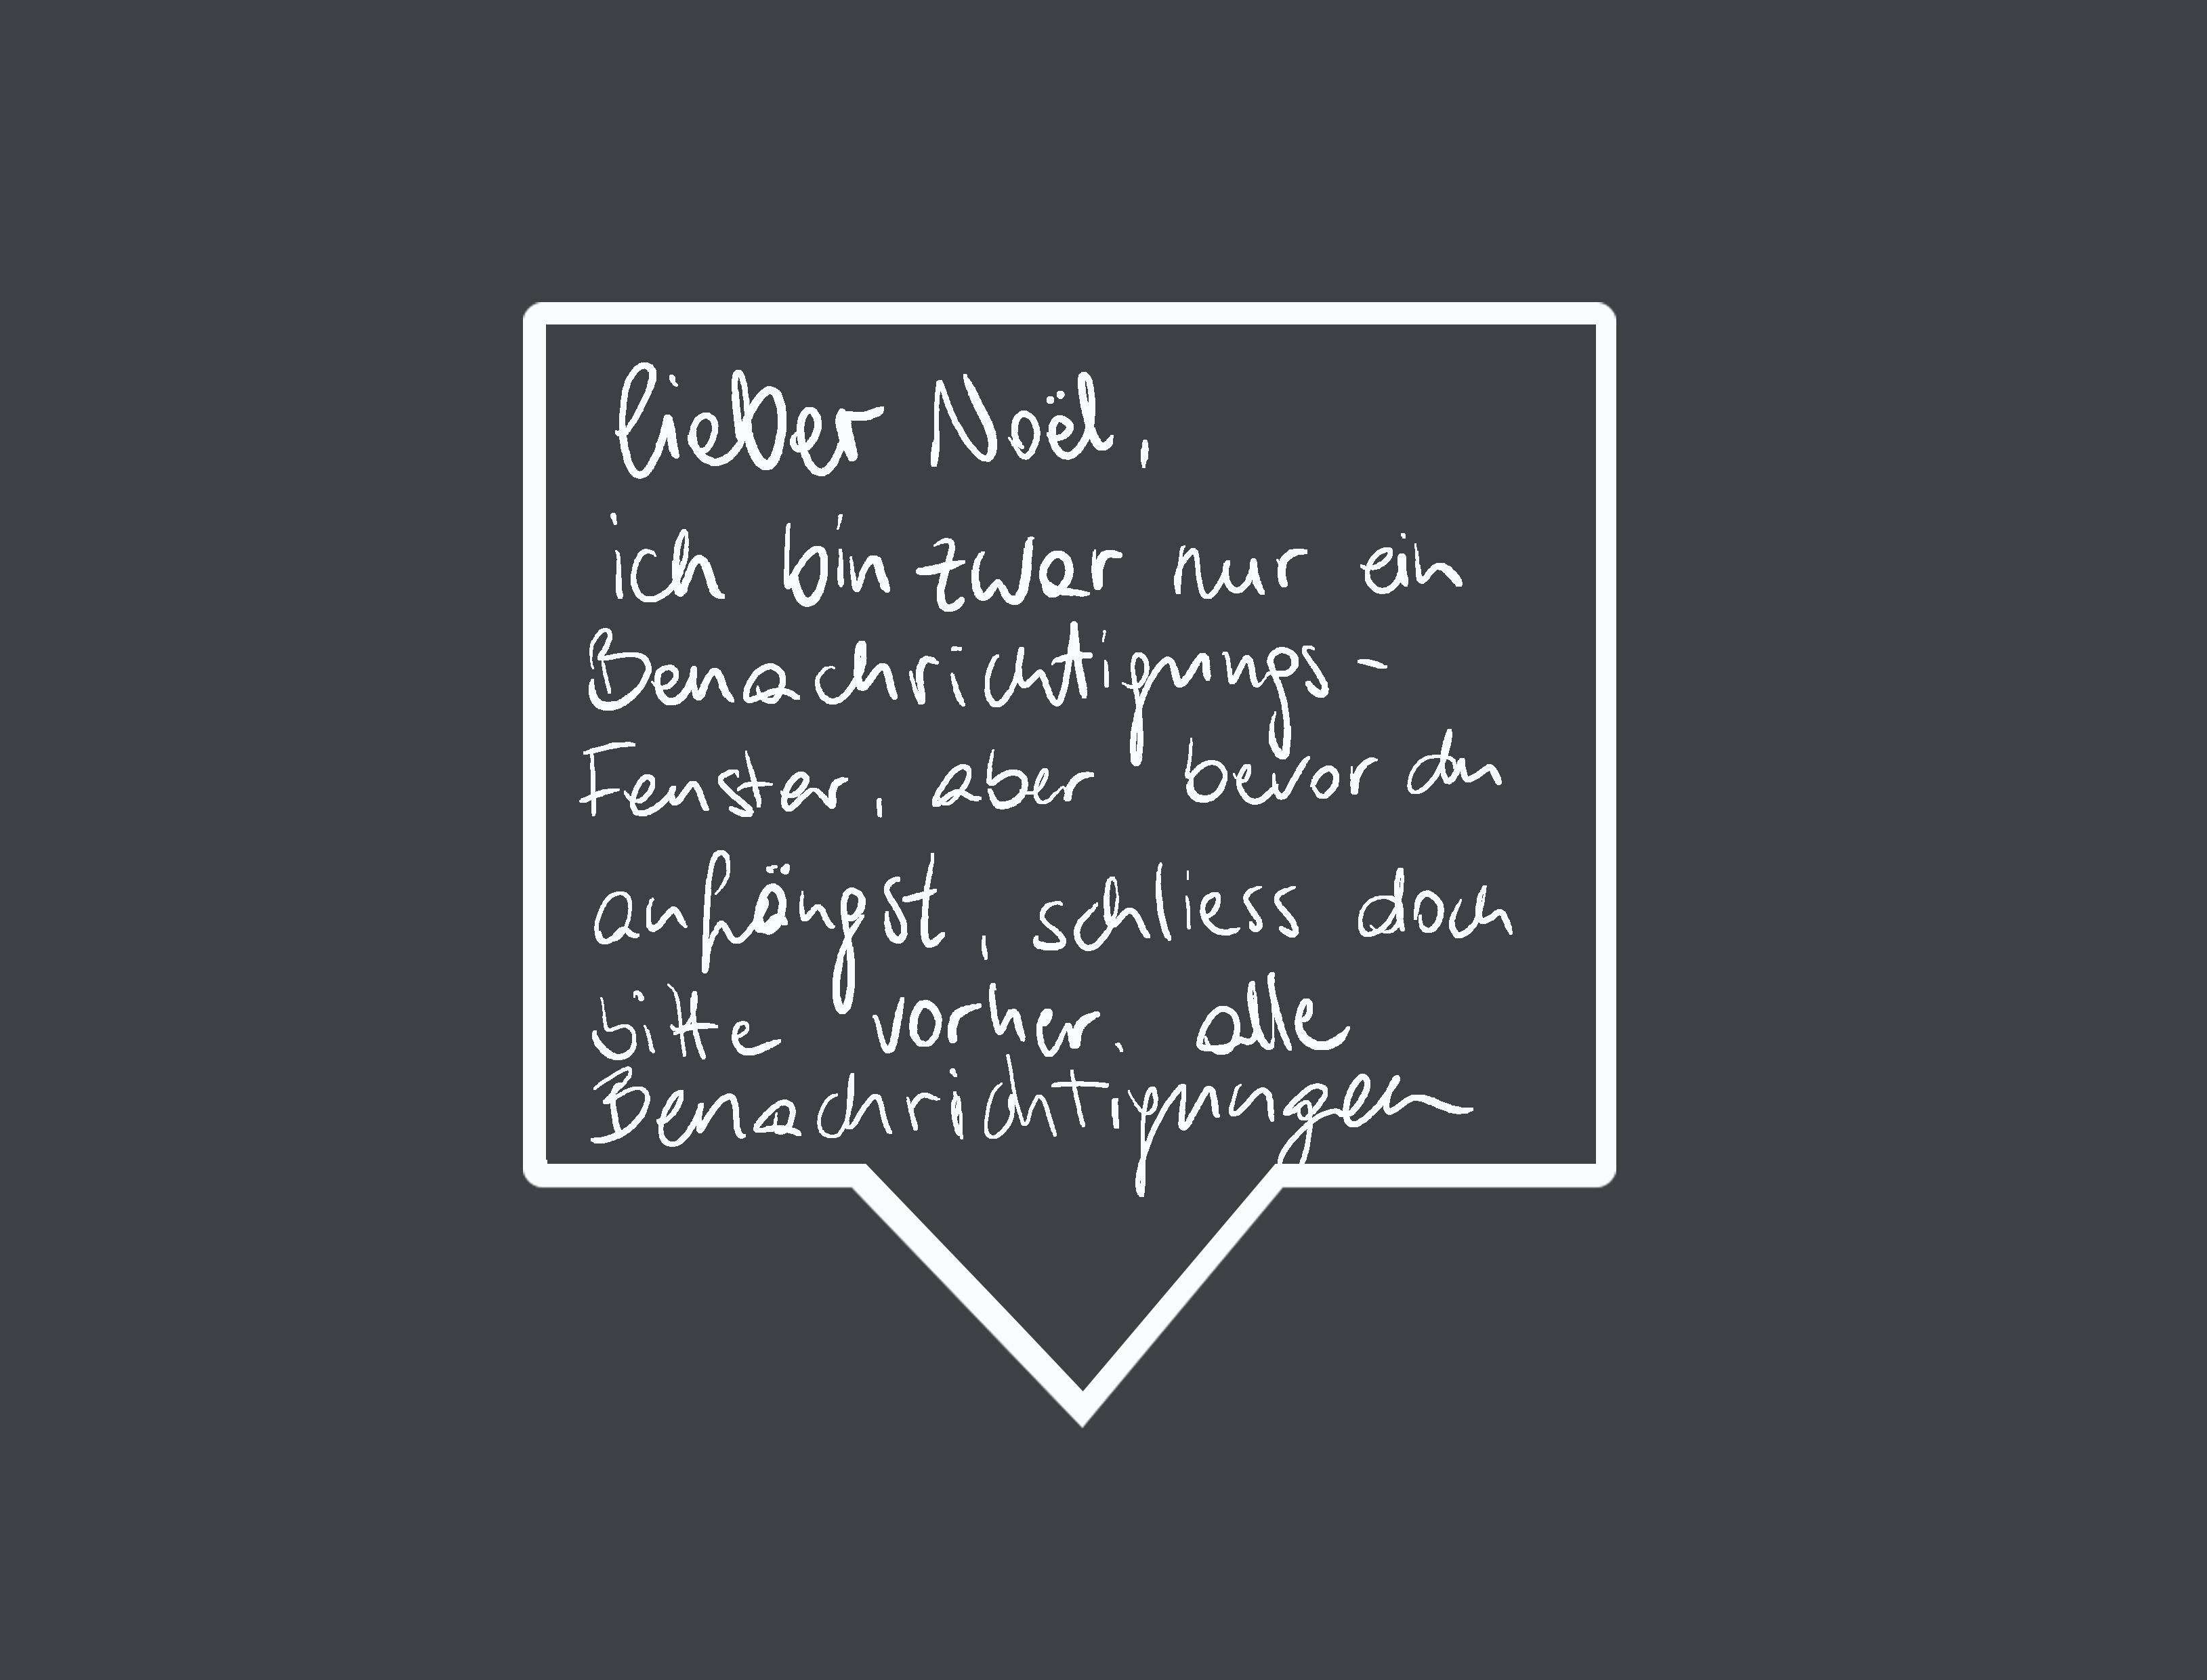 lieber Noël,
ich bin zwar nur ein
Benachrichtigungs-
Fenster, aber bevor du
anfängst, schliess doch
bitte vorher alle
Benachrichtigungen